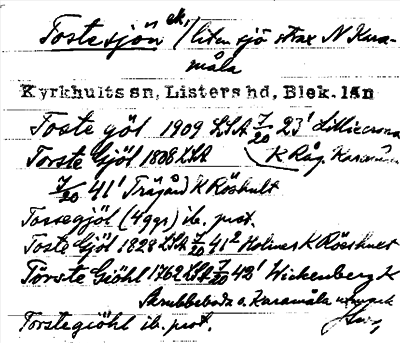 Tostesjön ek, /liten sjö strax N Kara-
måla
Kyrkhults sn, Listers hd, Blek. län
Toste göl 1909 LSA 7/20 23¹ Lilliecrona
Torste Gjöl 1808 LSA K Råg. Karamåla
7/20 41¹ Trägård K Röshult
Tossegjöl (4 ggr) ib. prot.
Toste Gjöl 1828 LSA 7/20 41² Holmer K Röeshult
Törste Giöhl 1762 LSA 7/20 43¹ Wickenberg K
Skrubbeboda o. Karamåla utmark
Torstegiöhl ib. prot.